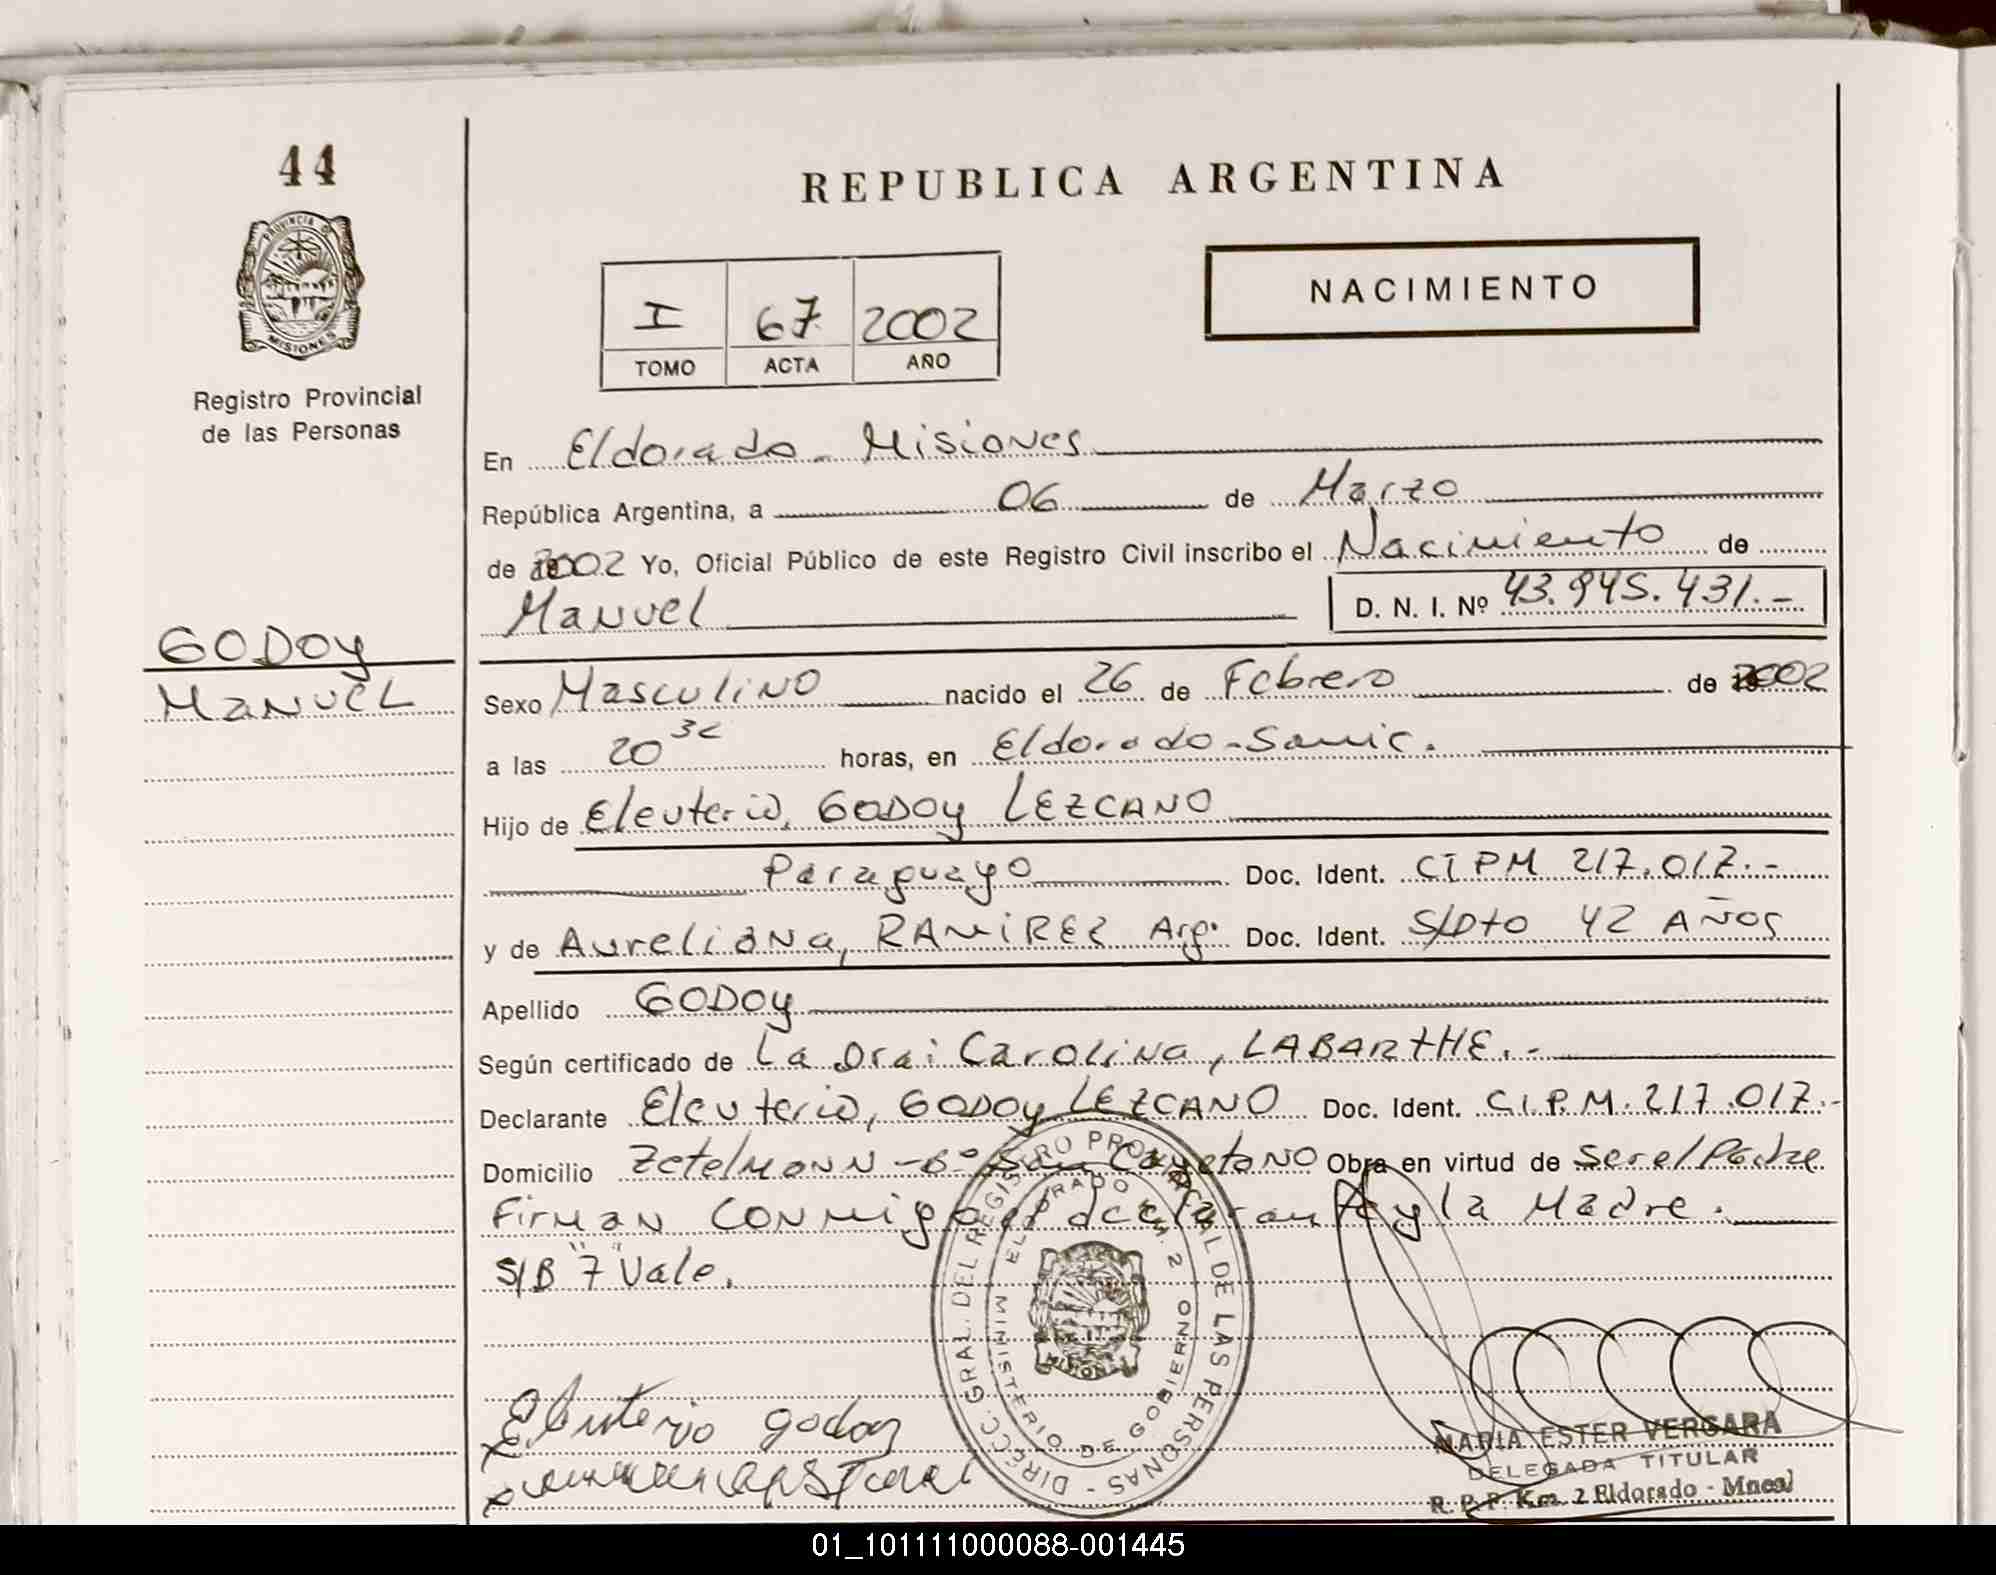 44
PROVINCIA DE
MISIONES
Registro Provincial
de las Personas
GODOY
MANUEL
REPUBLICA ARGENTINA
I 67 2002
TOMO ACTA AÑO
NACIMIENTO
En Eldorado - Misiones
República Argentina, a 06 de Marzo
de 2002 Yo, Oficial Público de este Registro Civil inscribo el Nacimiento de
Manuel D. N. I. Nº 43.945.431.-
Sexo Masculino nacido el 26 de Febrero de 2002
a las 20 horas, en Eldorado - Samic.
Hijo de Eleuterio, GODOY LEZCANO
Paraguayo Doc. Ident. CIPM 217.017.-
y de Aureliana, RAMIREZ Arg. Doc. Ident. S/Dto 42 AÑOS
Apellido GODOY
Según certificado de La Dra: Carolina, LABARTHE.-
Declarante Eleuterio, GODOY LEZCANO Doc. Ident. C.I.P.M. 217.017.-
Domicilio Zetelmann - Bº San Cayetano Obra en virtud de Ser el Padre
Firman conmigo el declarante y la Madre.
S/B "7" Vale.
DIRECC. GRAL. DEL REGISTRO PROVINCIAL DE LAS PERSONAS -
MINISTERIO DE GOBIERNO
ELDORADO KM. 2
Eleuterio godoy
MARIA ESTER VERGARA
DELEGADA TITULAR
R. P. P. Km. 2 Eldorado - Mnes.
01_101111000088-001445